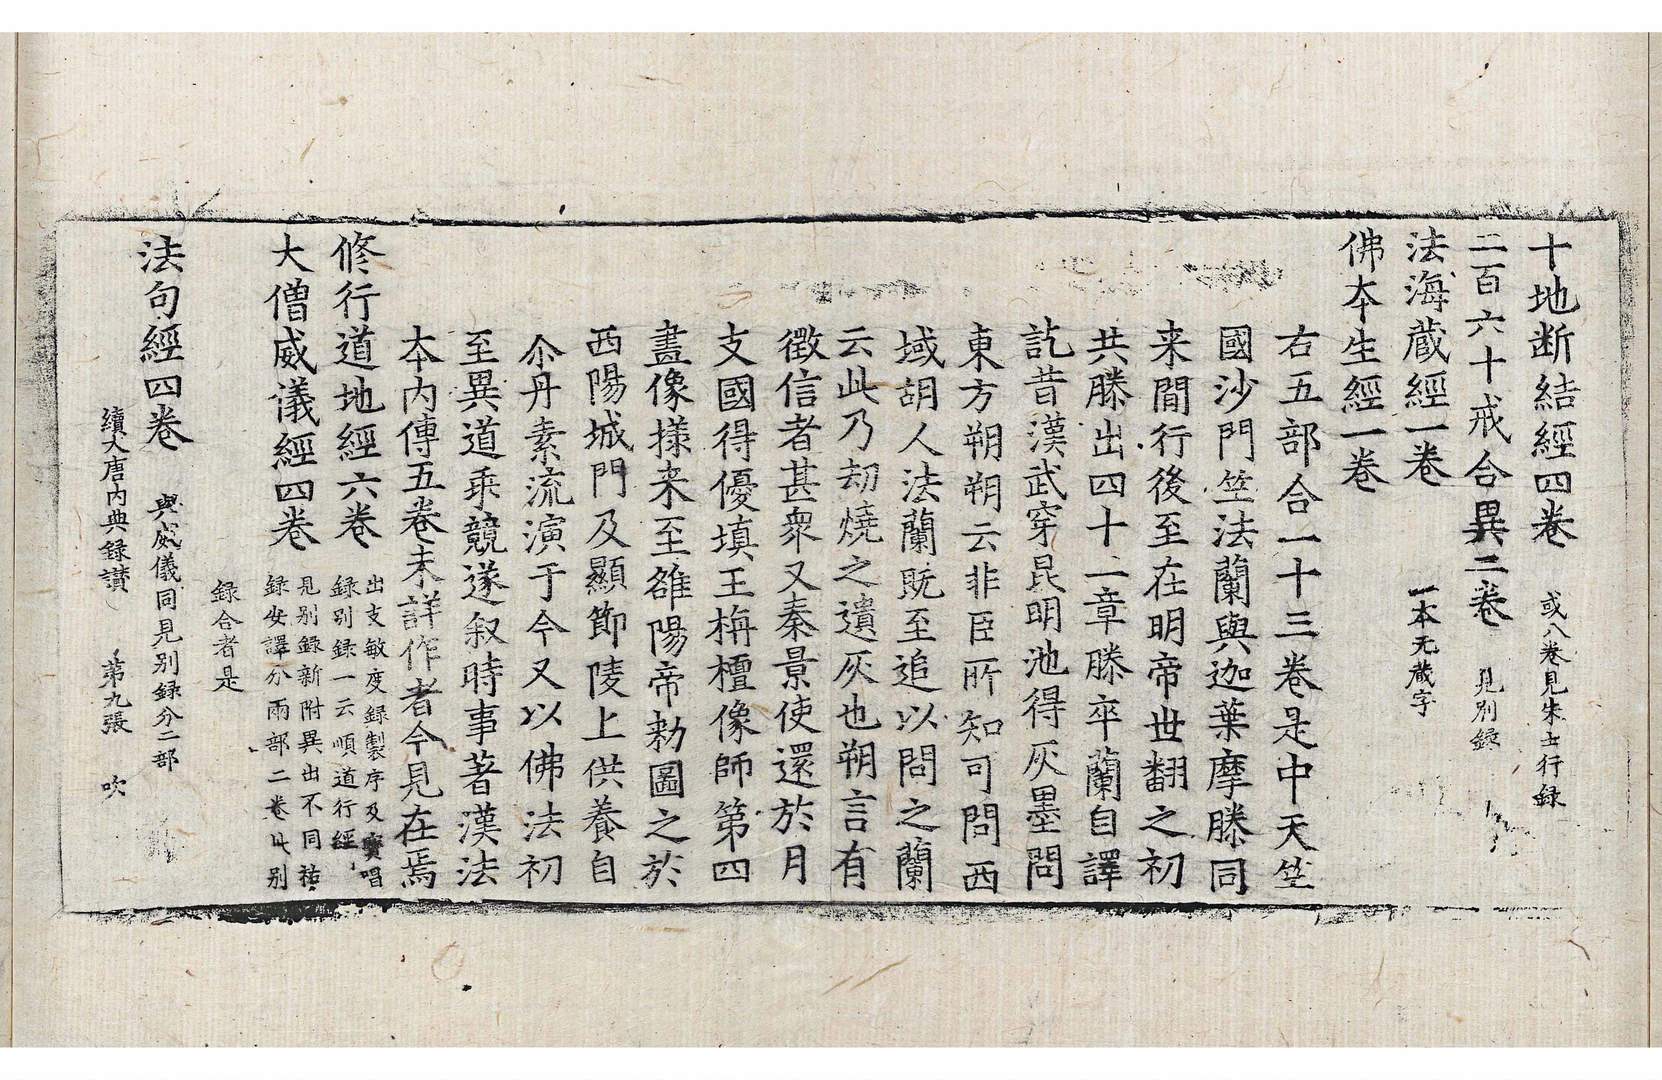 十地断結經四卷 或八卷見朱士行録
二百六十戒合異二卷 見別録
法海蔵經一卷 一本无蔵字
佛夲生經一卷
右五部合一十三卷是中天竺
國沙門竺法蘭與迦葉摩騰同
来間行後至在明帝世翻之初
共騰出四十二章騰卒蘭自譯
訖昔漢武穿昆明池得灰墨問
東方朔朔云非臣所知可問西
域胡人法蘭既至追以問之蘭
云此乃劫燒之遺灰也朔言有
徵信者甚衆又秦景使還於月
支國得優填王栴檀像師第四
畫像㨾来至雒陽帝勑圖之於
西陽城門及顯節陵上供養自
尒丹素流演于今又以佛法初
至異道乘競遂叙時事著漢法
夲内傳五卷未詳作者今見在焉
修行道地經六卷 出支敏度録製序及寶唱
録別録一云順道行經
大僧威儀經四卷 見别録新附異出不同祐
録安譯分兩部二卷此别
録合者是
法句經四卷 與威儀同見别録分二部
續大唐内典録讃 第九張 吹